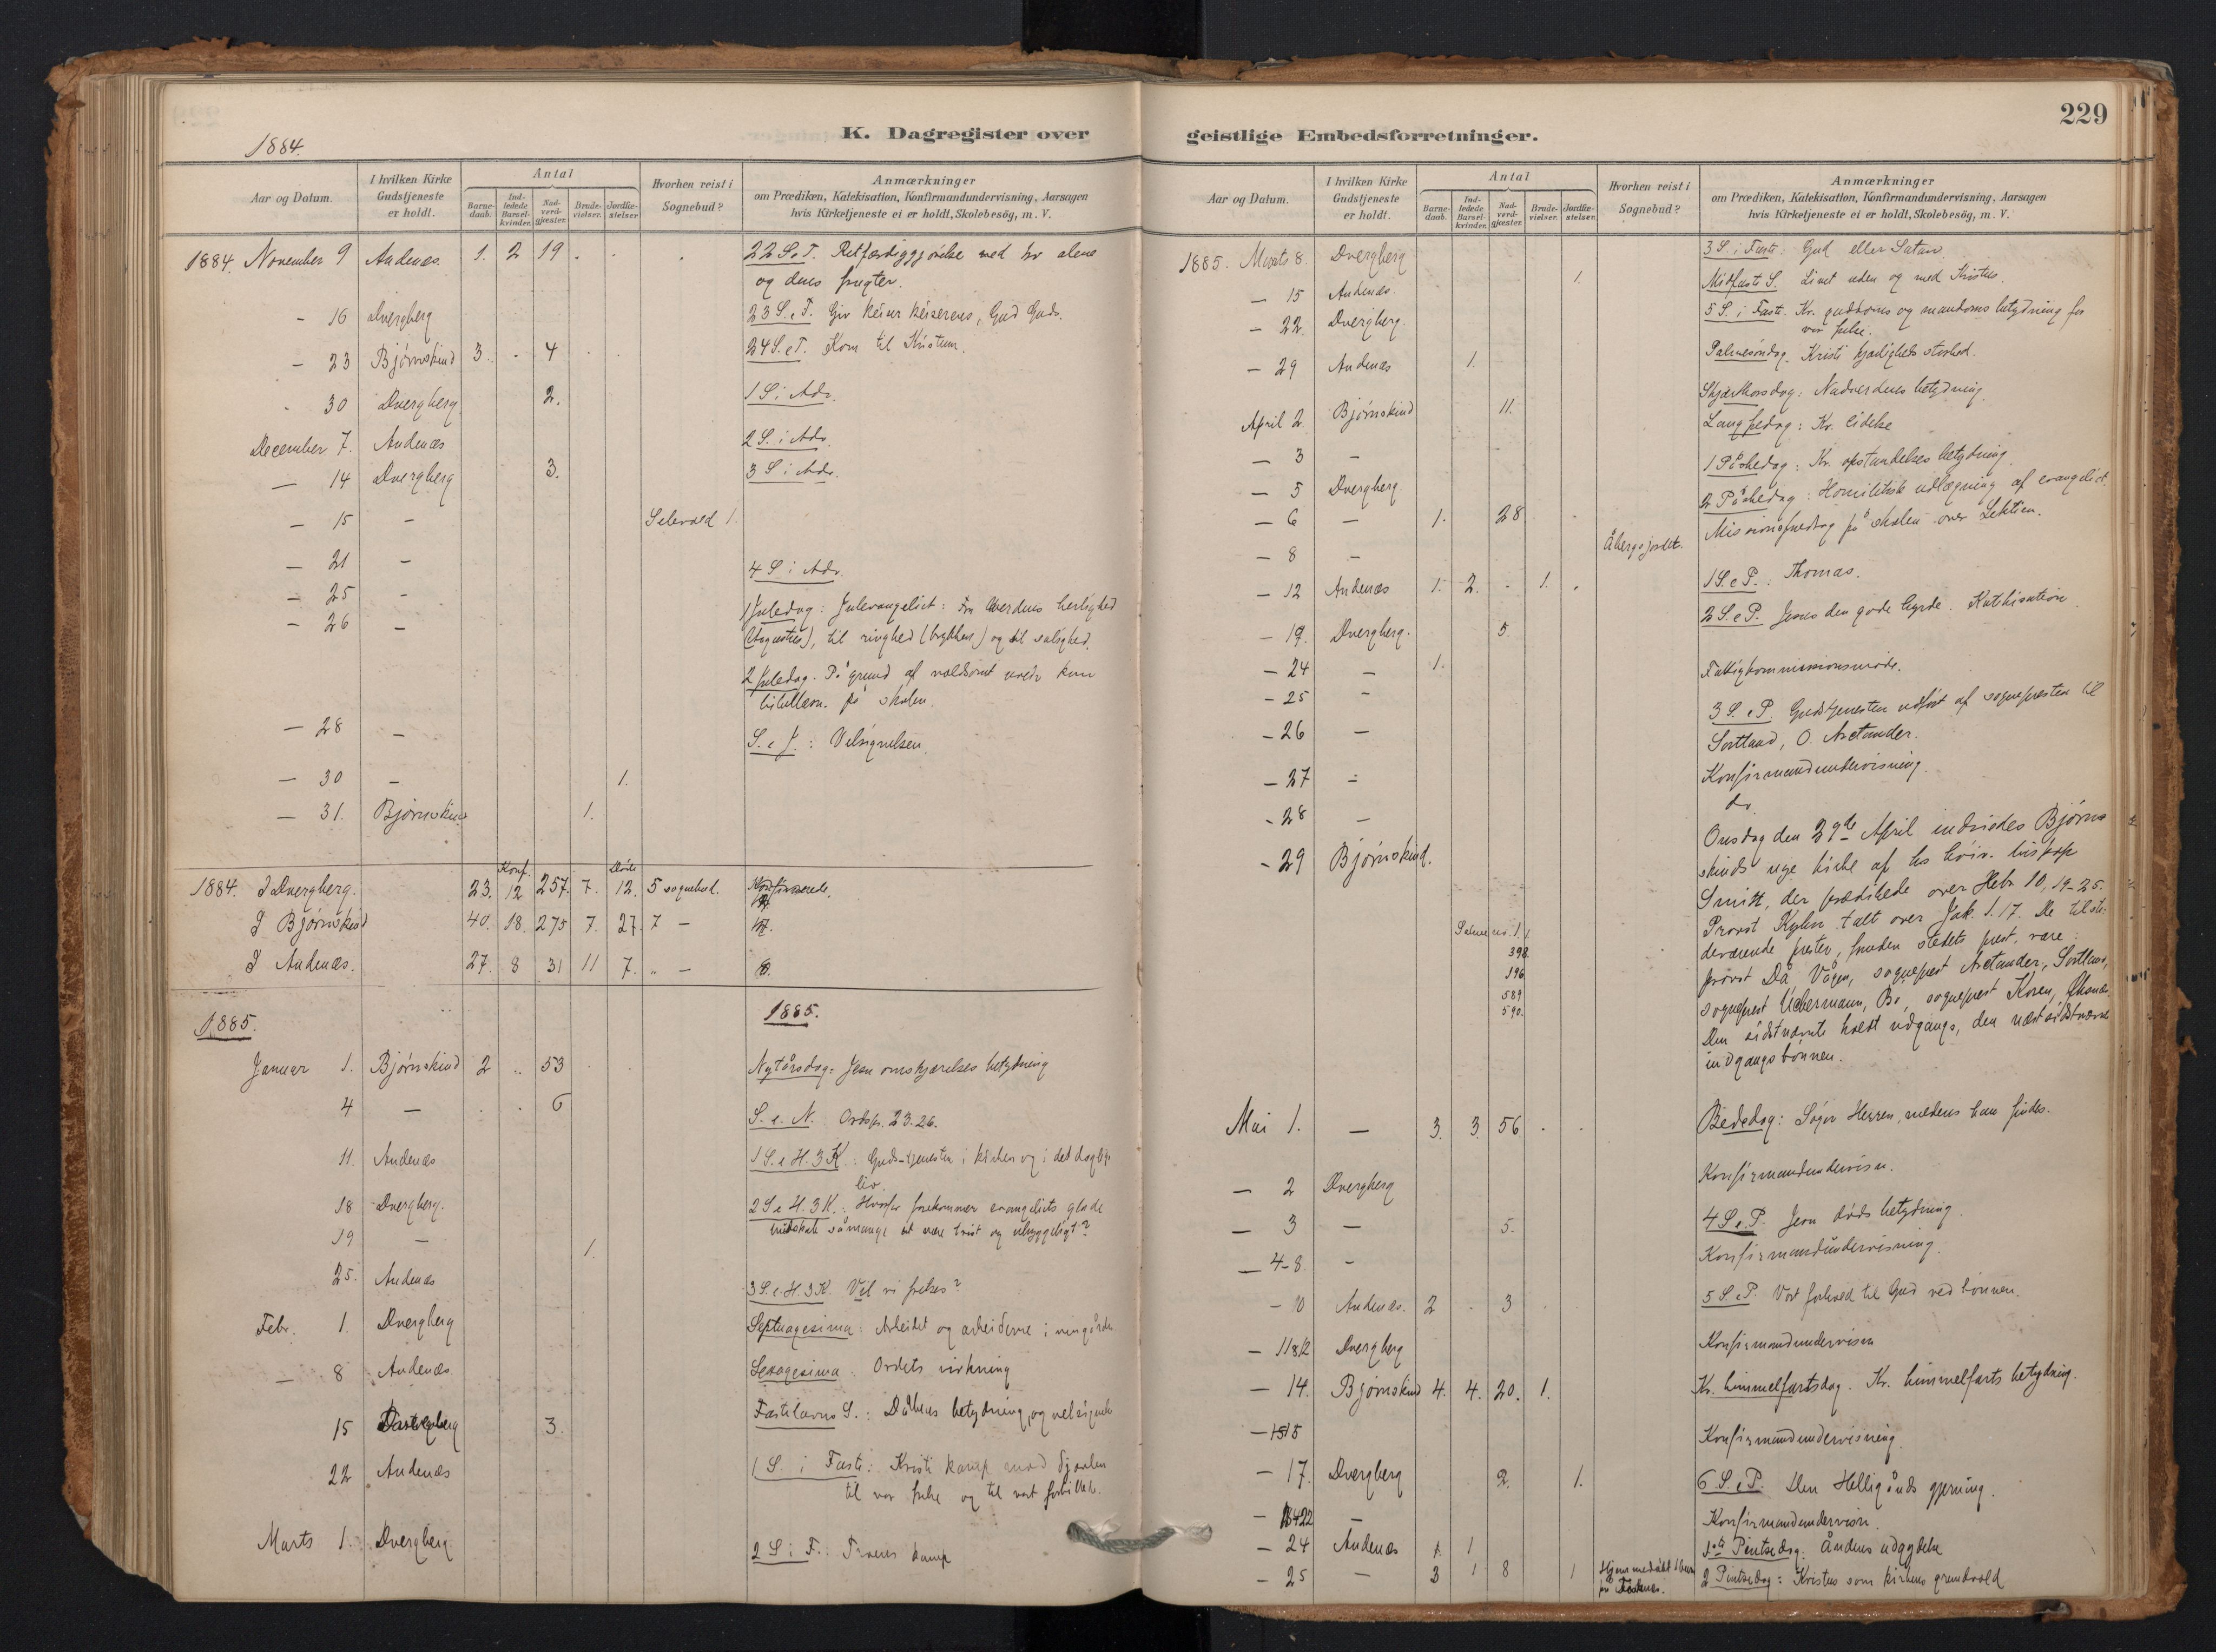 229
K. Dagregister over geistlige Embedsforretninger.
1884.
Aar og Datum.
I hvilken Kirke Gudstjeneste er holdt.
Antal
Barne-daab.
Ind-ledede Barsel-kvinder.
Nad-verd-gjester.
Brude-vielser.
Jordfæ-stelser
Hvorhen reist i Sognebud?
Anmærkninger
om Prædiken, Katekisation, Konfirmandundervisning, Aarsagen
hvis Kirketjeneste ei er holdt, Skolebesög, m. V.
1884. November 9 Andenæs. 1. 2 19 . . . 22 S.e.T. Retfærdiggjørelse ved tro alene
og dens frugter.
- 16 Dvergberg 23 S.e.T. Giv keiser keiserens, Gud Guds.
- 23 Bjørnskind 3 . 4 . . 24 S.e.T. Kom til Kristum.
- 30 Dvergberg 2. 1 S. i Adv.
December 7. Andenæs 2 S. i Adv.
— 14 Dvergberg 3. 3 S. i Adv.
— 15 - 1.
— 21 - 4 S. i Adv.
— 25 - 1 Juledag: Juleevangeliet: Fra verdens herlighed
— 26 - (Augustus), til ringhed (krybben) og til salighed.
2 Juledag. På grund af voldsomt veir kun
på skolen.
— 28 - S. e. J.: Velsignelsen.
— 30 - 1.
— 31. Bjørnskind 1.
Konf. Døde
1884. I Dvergberg. 23. 12 257. 7. 12. 5 sognebud. Konfirmerede.
I Bjørnskind 40. 18. 275 7. 27. 7 —
I Andenæs. 27. 8 31 11 7. " —
1885. 1885.
Januar 1. Bjørnskind 2 .. 53 . . Nytårsdag: Jesu omskjærelses betydning
4 — . . 6 S. e. N. Ordsp. 23.26.
11. Andenæs 1 S. e H. 3 K.: Guds-tjenesten i kirken og i det daglige
liv.
18 Dvergberg. 2 S e H. 3 K.: Hvorfor forekommer evangeliets glade
budskab såmange at være trist og uhyggeligt?
19 — 1.
25. Andenæs 3 S. e. H. 3 K. Vil vi frelses?
Febr. 1. Dvergberg Septuagesima: Arbeidet og arbeiderne i vingården
— 8 Andenæs Sexagesima: Ordets virkning
15 Dvergberg 3. Fastelavns S.: Dåbens betydning og velsignelse
22 Andenæs 1 S. i Faste: Kristi kamp mod djævelen
til vor frelse og til vort forbillede.
Marts 1. Dvergberg 2 S. i F.: Troens kamp
Aar og Datum.
I hvilken Kirke Gudstjeneste er holdt.
Antal
Barne-daab.
Ind-ledede Barsel-kvinder.
Nad-verd-gjester.
Brude-vielser.
Jordfæ-stelser.
Hvorhen reist i Sognebud?
Anmærkninger
om Prædiken, Katekisation, Konfirmandundervisning, Aarsagen
hvis Kirketjeneste ei er holdt, Skolebesög, m. V.
1885. Marts 8. Dvergberg 3 S. i Faste: Gud eller Satan.
— 15 Andenæs. 1. Midfaste S. Livet uden og med Kristus.
— 22. Dvergberg. 5 S. i Faste. Kr. guddoms og mandoms betydning for
vor frelse.
— 29 Andenæs 1. Palmesöndag. Kristi kjærligheds storhed.
April 2. Bjørnskind 11. Skjærthorsdag: Nadverdens betydning.
— 3 - Langfredag: Kr. lidelse
— 5 Dvergberg. 1 Påskedag: Kr. opstandelses betydning.
— 6 — 1. 28 2 Påskedag: Homiletisk udlægning af evangeliet.
— 8 — Åbergsjordet. Missionsforedrag på skolen over Lektien.
— 12 Andenæs 1. 2. . 1. . 1 S. e P.: Thomas.
— 19. Dvergberg. 5. 2 S. e P. Jesus den gode hyrde. Katekisation.
— 24 — 1. Fattigkommissionsmøde.
— 25 -
— 26 — 3 S. e P. Gudstjenesten udført af sognepresten til
Sortland, O. Arctander.
— 27 - Konfirmandundervisning.
— 28 — do.
— 29 Bjørnskind. Onsdag den 29de April indviedes Bjørn-
skinds nye kirke af hs höiv. biskop
Smitt, der prædikede over Hebr. 10, 19-25.
Provst talt over Jak. 1.17. De tilste-
deværende prester, foruden stedets prest, vare:
provst Då Vågen, sogneprest Arctander, Sortland,
sogneprest Uchermann, Bø, sogneprest Koren, Øksnæs.
Den sidstnævnte holdt udgangs, den næstsidstnævnte
indgangsbönnen.
Salme no. 1.
398.
196
589
590.
Mai 1. — 3. 3. 56 . . Bededag: Søger Herren, medens han findes.
— 2 Dvergberg Konfirmandundervisn.
— 3 — 5. 4 S. e. P. Jesu döds betydning.
— 4-8. - Konfirmandundervisning.
— 10 Andenæs. 2 . 3 . . 5 S. e P. Vort forhold til Gud ved bönnen.
— 11&12 Dvergberg Konfirmandundervisn
— 14. Bjørnskind 4. 4. 20. 1. Kr. himmelfartsdag. Kr. himmelfarts betydning.
— 15 Konfirmandundervisning.
— 17. Dvergberg 2. 1. 6 S. e P. Den Helligånds gjerning.
— 22 — Konfirmandundervisn.
— 24 Andenæs 1. 1 1ste Pintsedag. Åndens udgydelse
— 25 — 3 1 8 1 Hjemmedöbt 1 barn
på 2 Pintsedag: Kristus som kirkens grundvold